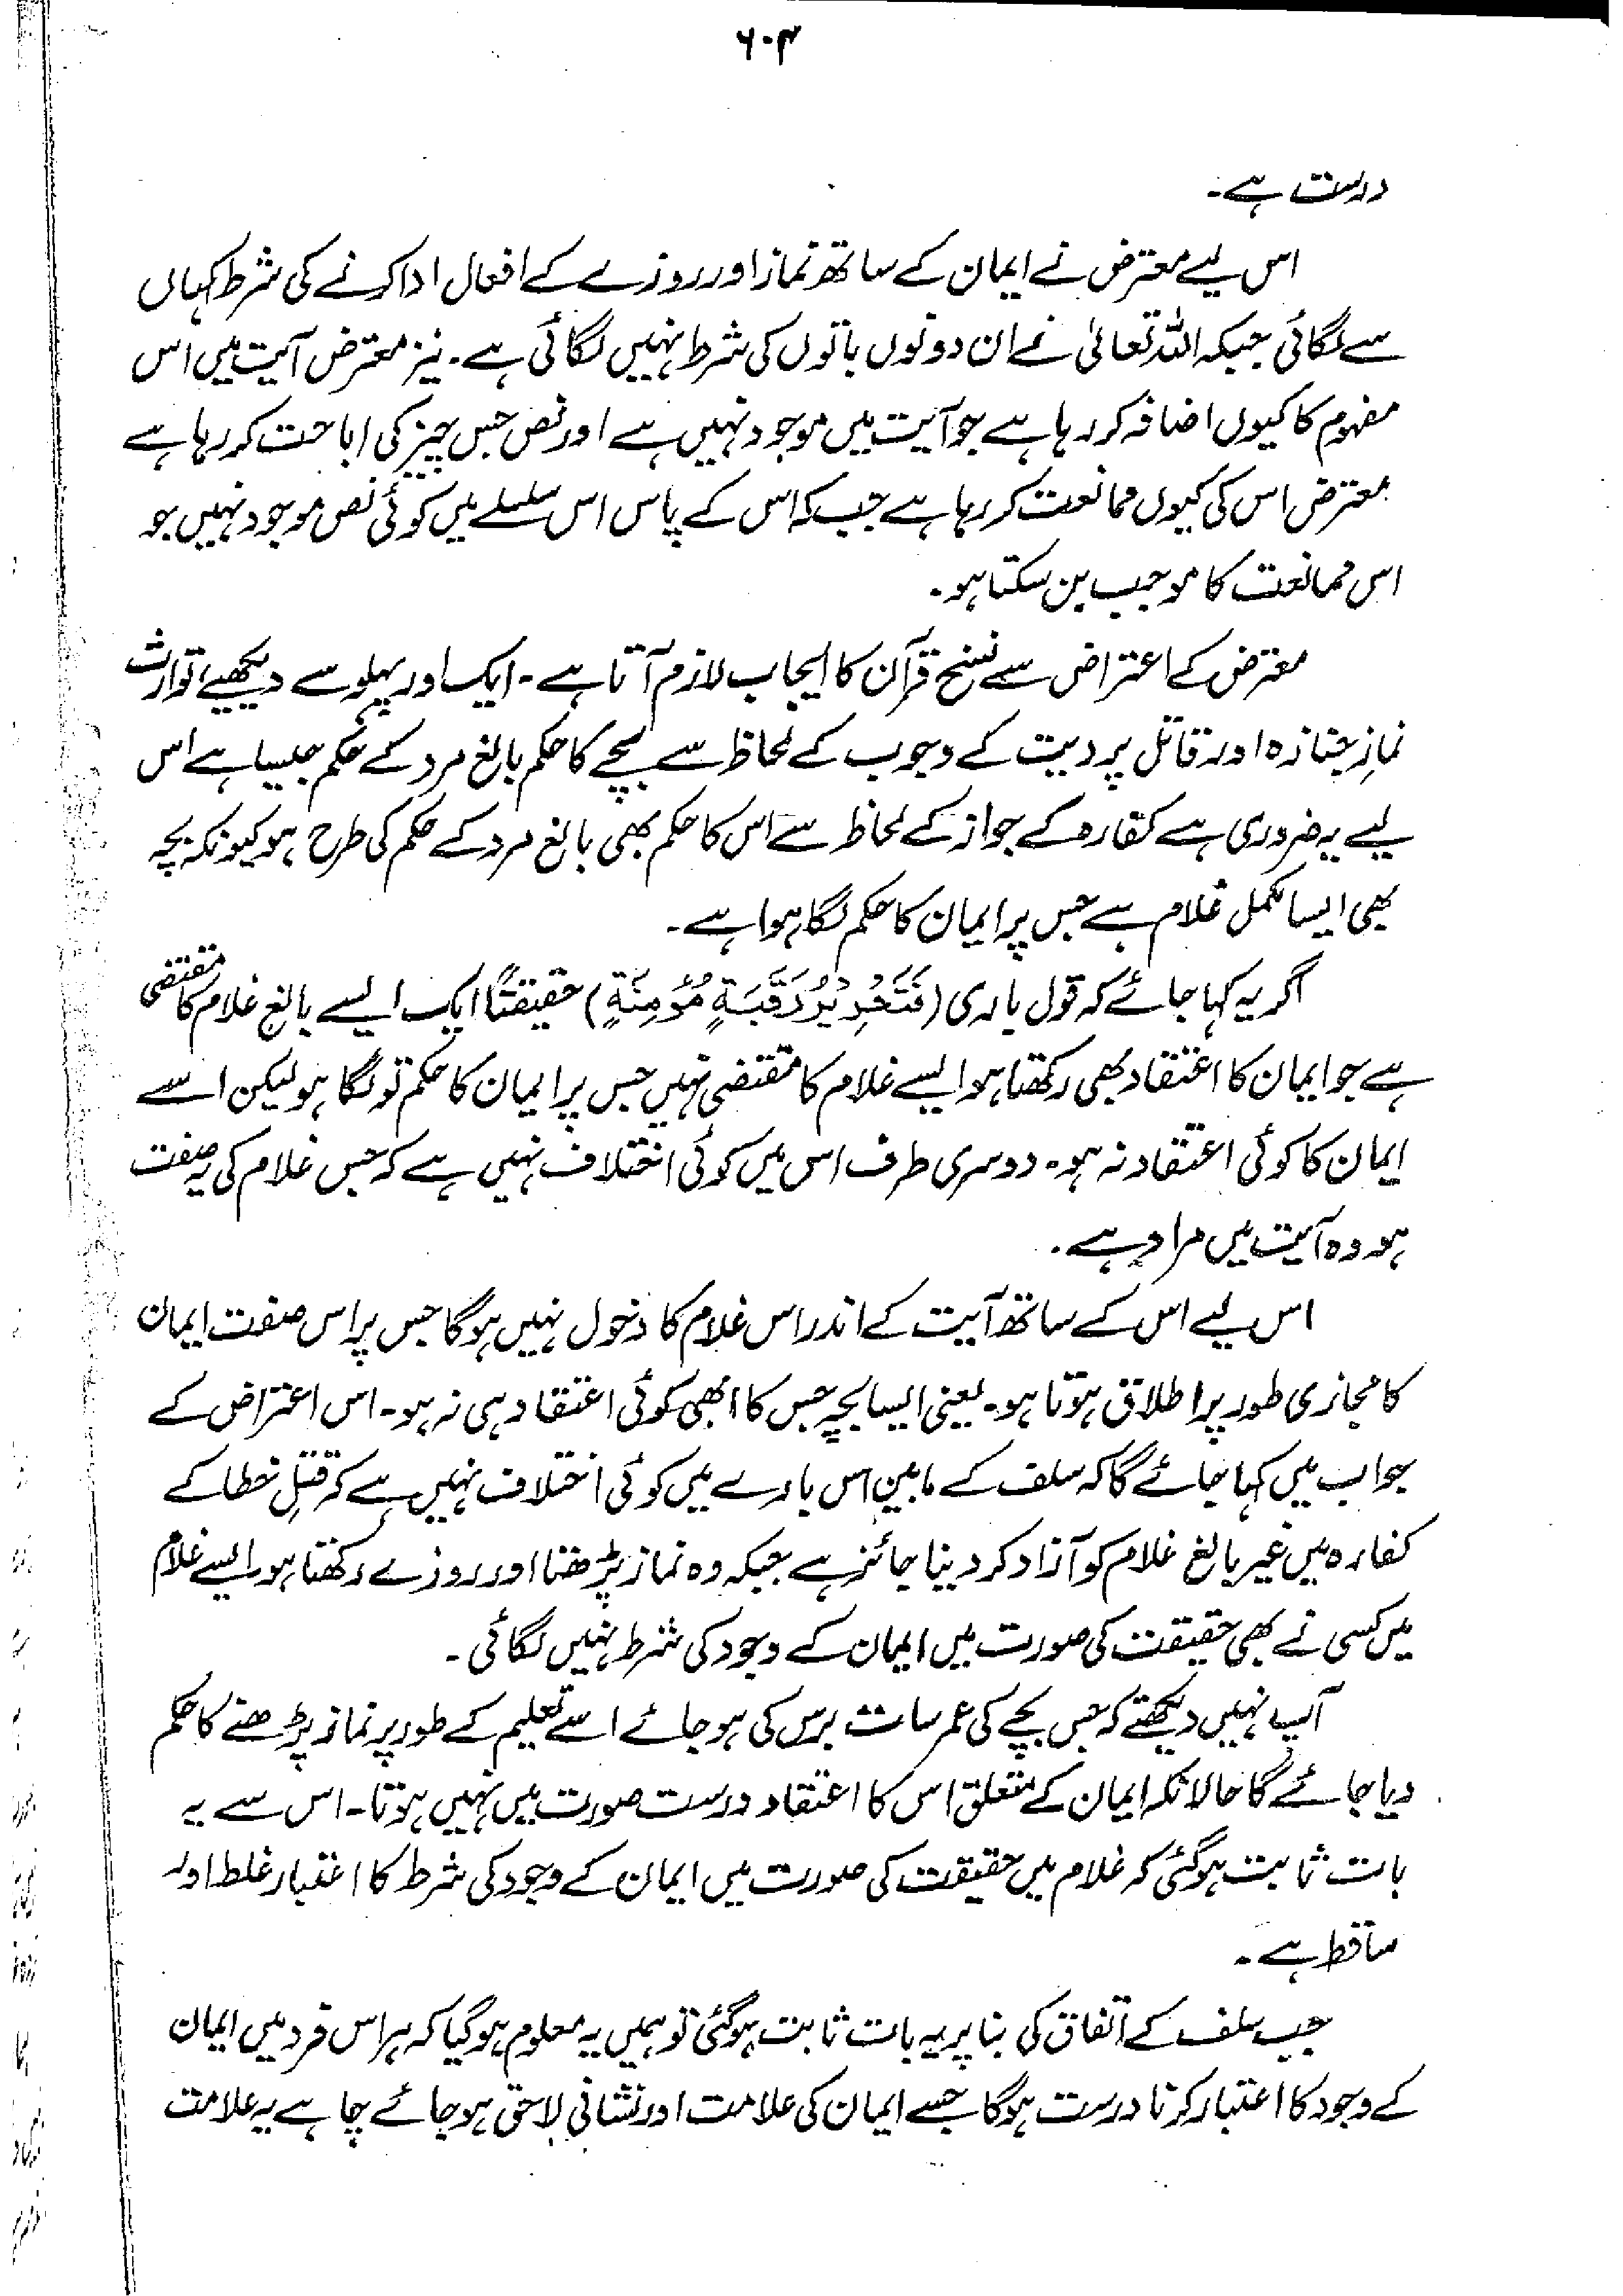 ۶۰۴
درست ہے۔
اس لیے معترض نے ایمان کے ساتھ نماز اور روزے کے افعال ادا کرنے کی شرط کہاں
سے لگائی جبکہ اللہ تعالیٰ نے ان دونوں باتوں کی شرط نہیں لگائی ہے۔ نیز معترض آیت میں اس
مفہوم کا کیوں اضافہ کر رہا ہے جو آیت میں موجود نہیں ہے اور نص جس چیز کی اباحت کر رہا ہے
معترض اس کی کیوں ممانعت کر رہا ہے جب کہ اس کے پاس اس سلسلے میں کوئی نص موجود نہیں جو
اس ممانعت کا موجب بن سکتا ہو۔
معترض کے اعتراض سے نسخ قرآن کا ایجاب لازم آتا ہے۔ ایک اور پہلو سے دیکھیے، توارث
نمازِ جنازہ اور قاتل پر دیت کے وجوب کے لحاظ سے بچے کا حکم بالغ مرد کے حکم جیسا ہے اس
لیے یہ ضروری ہے کفارہ کے جواز کے لحاظ سے اس کا حکم بھی بالغ مرد کے حکم کی طرح ہو کیونکہ بچہ
بھی ایسا مکمل غلام ہے جس پر ایمان کا حکم لگا ہوا ہے۔
اگر یہ کہا جائے کہ قول باری (فَتَحْرِيْرُ رَقَبَةٍ مُؤْمِنَةٍ) حقیقتاً ایک ایسے بالغ غلام کا مقتضی
ہے جو ایمان کا اعتقاد بھی رکھتا ہو ایسے غلام کا مقتضی نہیں جس پر ایمان کا حکم تو لگا ہو لیکن اسے
ایمان کا کوئی اعتقاد نہ ہو۔ دوسری طرف اس میں کوئی اختلاف نہیں ہے کہ جس غلام کی یہ صفت
ہو وہ آیت میں مراد ہے۔
اس لیے اس کے ساتھ آیت کے اندر اس غلام کا دخول نہیں ہوگا جس پر اس صفت ایمان
کا مجازی طور پر اطلاق ہوتا ہو۔ یعنی ایسا بچہ جس کا ابھی کوئی اعتقاد ہی نہ ہو۔ اس اعتراض کے
جواب میں کہا جائے گا کہ سلف کے مابین اس بارے میں کوئی اختلاف نہیں ہے کہ قتلِ خطا کے
کفارہ میں غیر بالغ غلام کو آزاد کر دینا جائز ہے جبکہ وہ نماز پڑھتا اور روزے رکھتا ہو، ایسے غلام
میں کسی نے بھی حقیقت کی صورت میں ایمان کے وجود کی شرط نہیں لگائی۔
آپ نہیں دیکھتے کہ جس بچے کی عمر سات برس کی ہو جائے اسے تعلیم کے طور پر نماز پڑھنے کا حکم
دیا جائے گا حالانکہ ایمان کے متعلق اس کا اعتقاد درست صورت میں نہیں ہوتا۔ اس سے یہ
بات ثابت ہو گئی کہ غلام میں حقیقت کی صورت میں ایمان کے وجود کی شرط کا اعتبار غلط اور
ساقط ہے۔
جب سلف کے اتفاق کی بنا پر یہ بات ثابت ہو گئی تو ہمیں یہ معلوم ہو گیا کہ ہر اس فرد میں ایمان
کے وجود کا اعتبار کرنا درست ہوگا جسے ایمان کی علامت اور نشانی لاحق ہو جائے چاہے یہ علامت